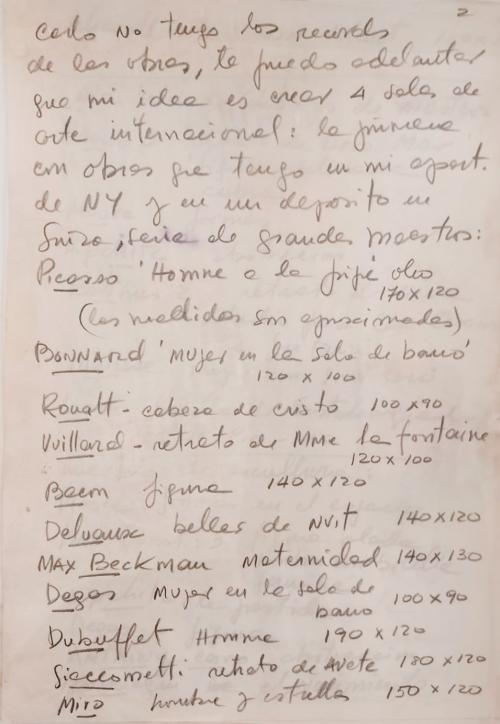 2
Carlo No tengo los records
de las obras, te puedo adelantar
que mi idea es crear 4 salas de
arte internacional: la primera
con obras que tengo en mi apart.
de NY y en un deposito en
Suiza, seria de grandes maestros:
Picasso 'Homne a la pipé oleo
170 x 120
(las medidas son aproximadas)
BONNARD 'Mujer en la sala de baño'
120 x 100
Roualt - cabeza de cristo 100 x 90
Vuillard - retrato de Mme la fontaine
120 x 100
Bacon figura 140 x 120
Delvaux belles de NUIT 140 x 120
MAX Beckman Maternidad 140 x 130
Degas Mujer en la sala de
baño 100 x 90
Dubuffet Homme 190 x 120
Giaccometti retrato de 180 x 120
Miro hombre y estrellas 150 x 120